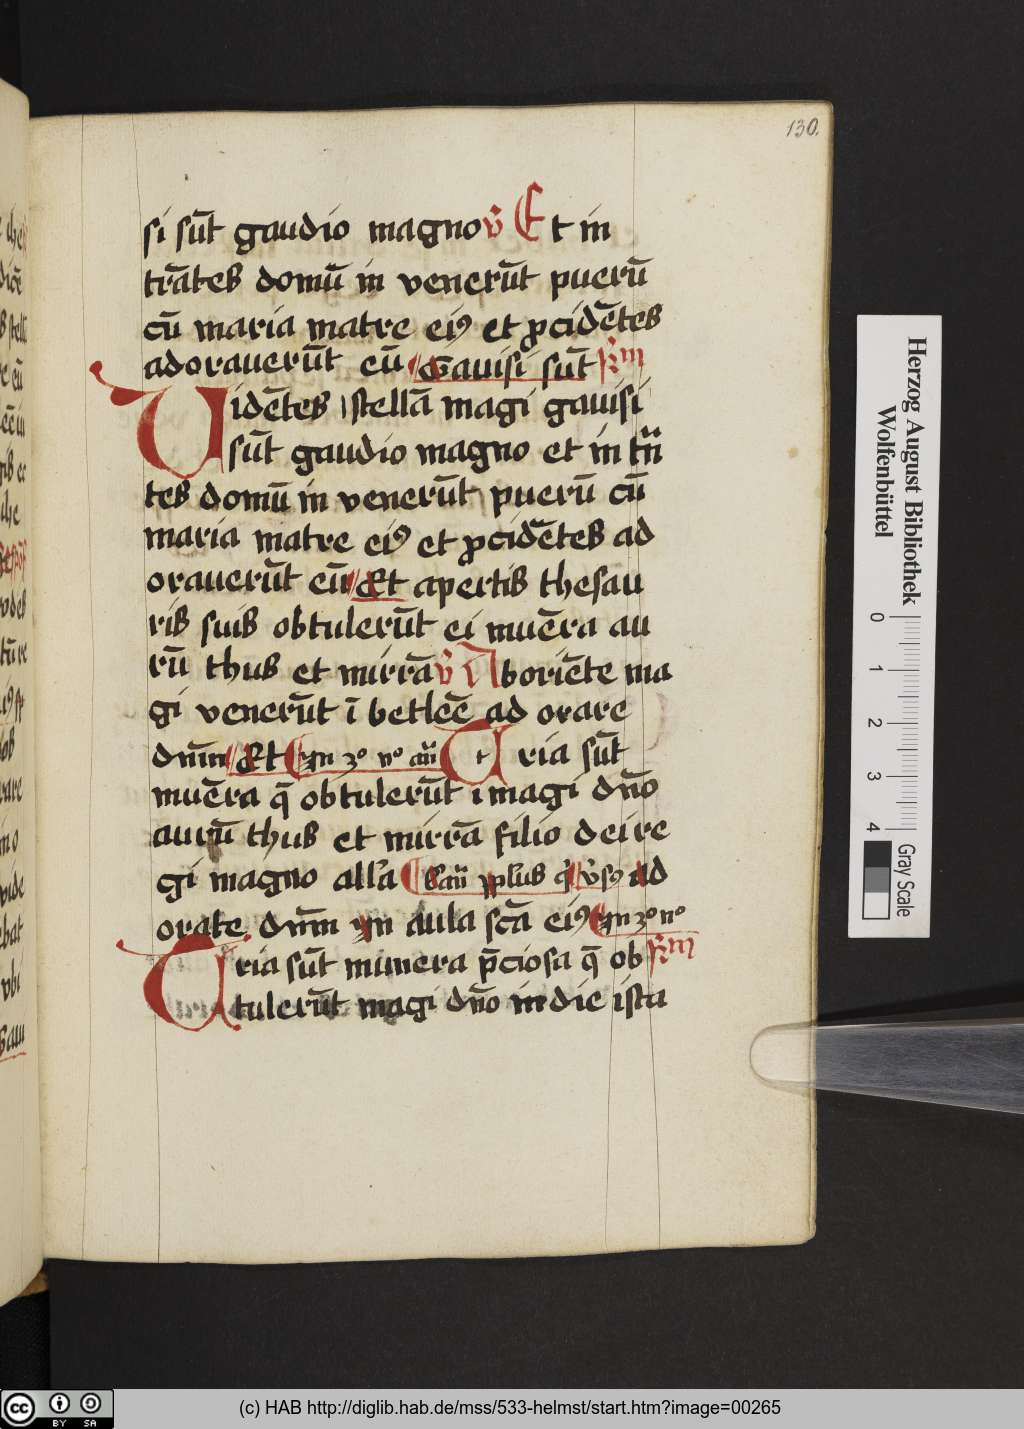 130.
si sūt gaudio magno v̄ Et in
trātes domū in venerūt puerū
cū maria matre ei9 et ꝓcidētes
adorauerūt eū Gauisi sūt
Vidētes stellā magi gauisi
sūt gaudio magno et in
tes domū in venerūt puerū cū
maria matre ei9 et ꝓcidētes ad
orauerūt eū Et apertis thesau
ris suis obtulerūt ei munēra au
rū thus et mirrā v̄ Aboriēte ma
gi venerūt ī betleē ad orare
dn̄m Et ria sūt
munēra q̄ obtulerūt magi dn̄o
aurū thus et mirrā filio dei re
gi magno all'a ad
orate dn̄m in aula scā ei9
Tria sūt munera p̄ciosa q̄ ob
tulerūt magi dn̄o in die ista
Herzog August Bibliothek
Wolfenbüttel
0 1 2 3 4
Gray Scale
cc BY SA
(c) HAB http://diglib.hab.de/mss/533-helmst/start.htm?image=00265